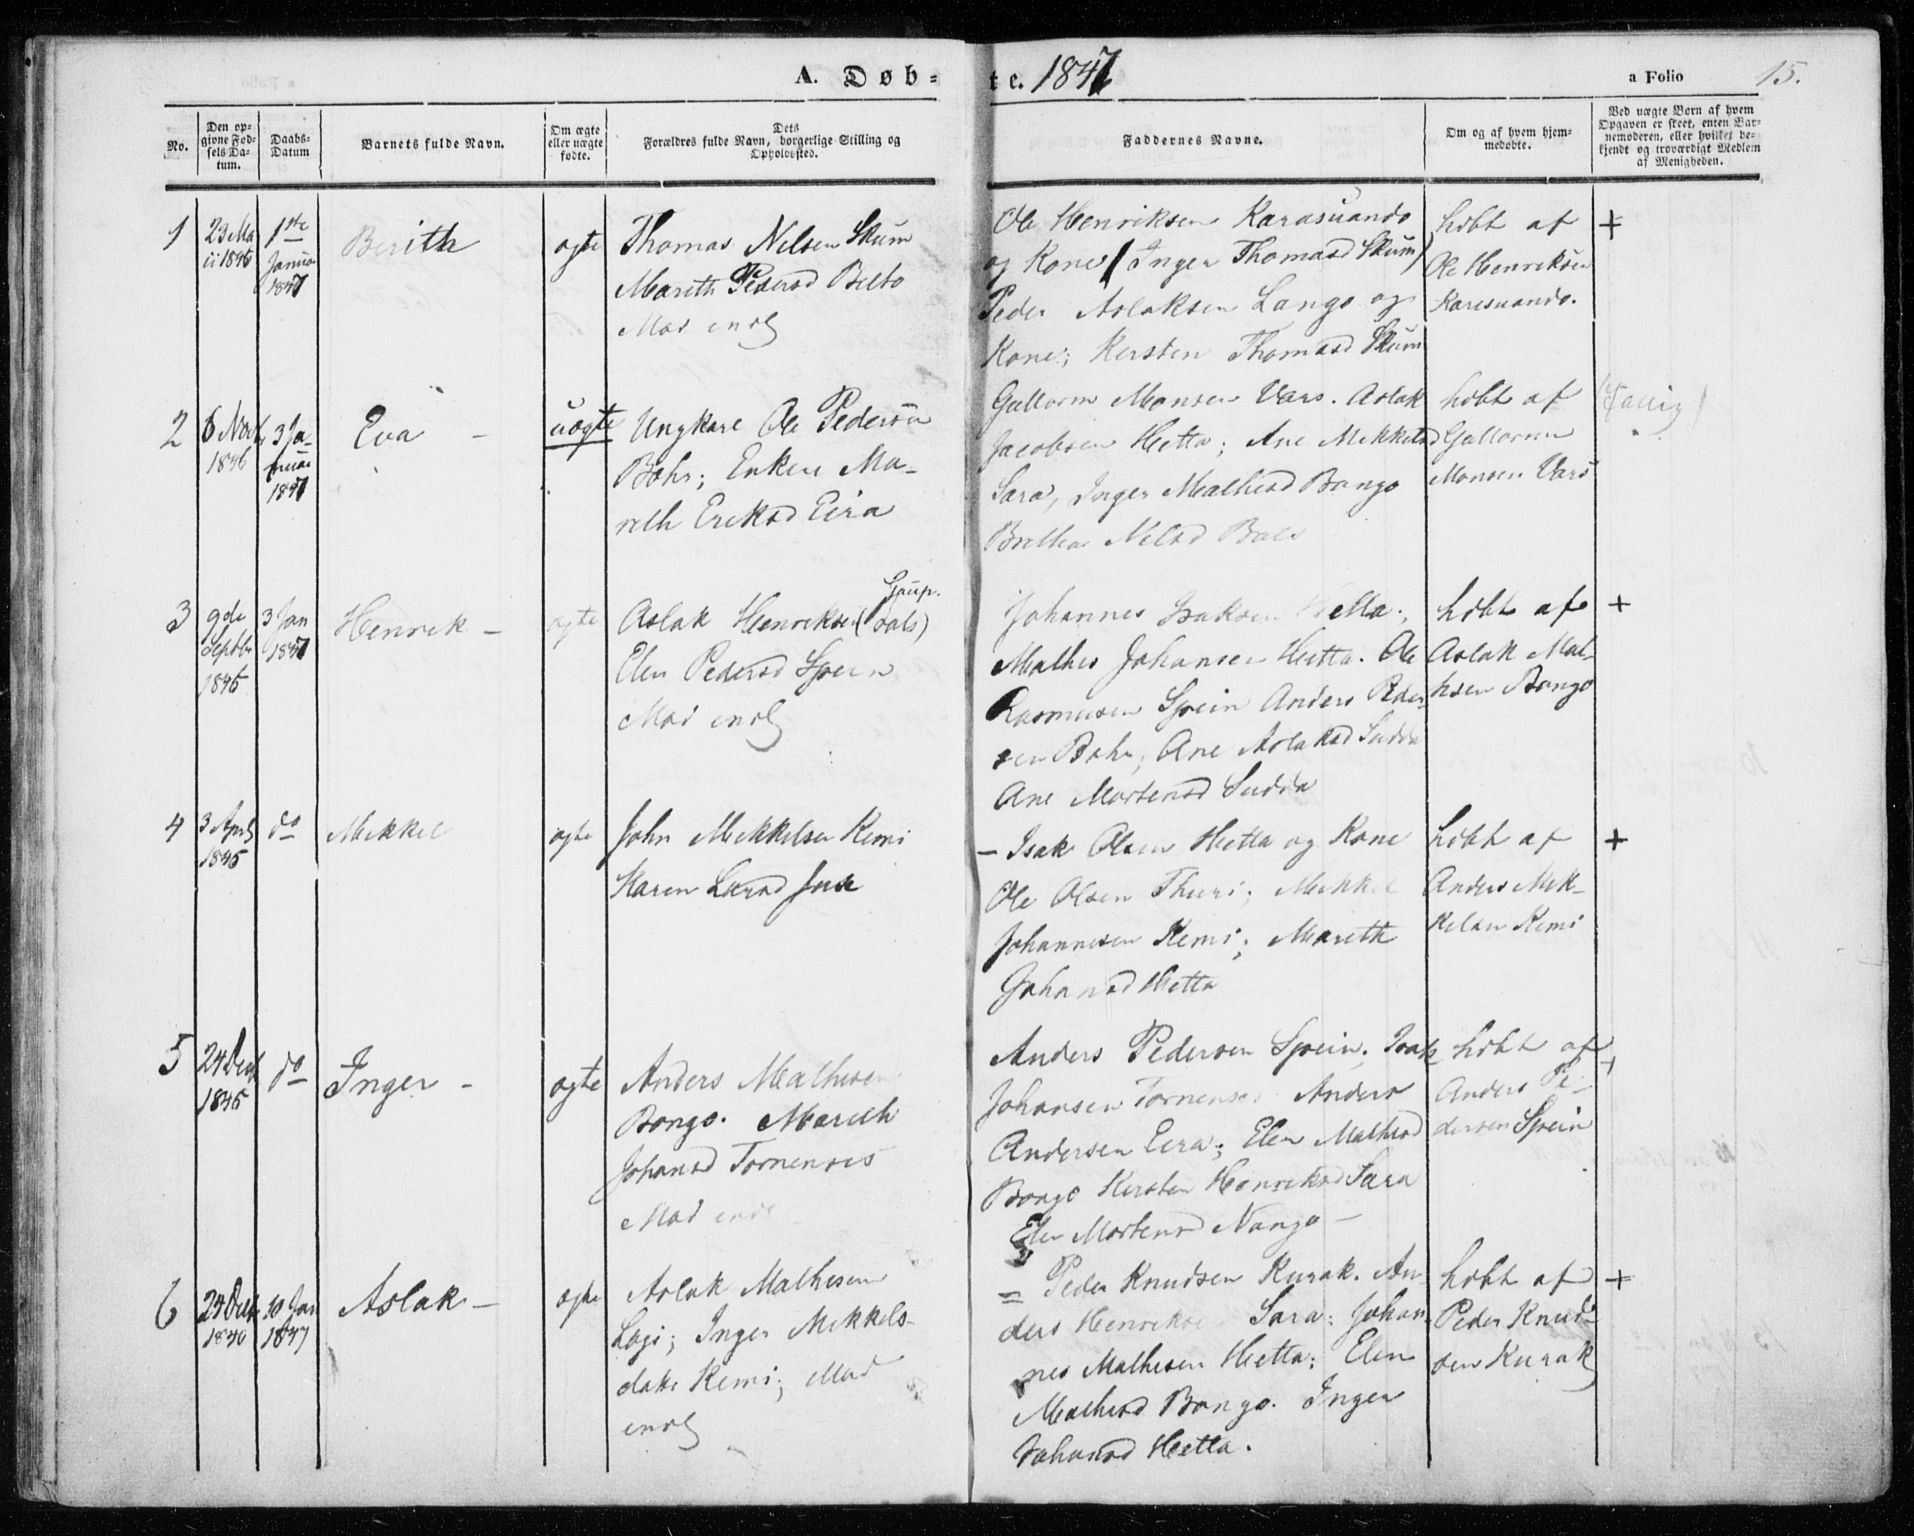 A. Døbte. 1847
a Folio 15.
No.
Den opgivne Fødsels Datum.
Daabs-Datum
Barnets fulde Navn.
Om ægte eller uægte fødte.
Dets Forældres fulde Navn, borgerlige Stilling og Opholdssted.
Faddernes Navne.
Om og af hvem hjemmedøbte.
Ved uægte Børn af hvem Opgaven er skeet, enten Barnemoderen, eller hvilket bekjendt og troværdigt Medlem af Menigheden.
1
23 Ma
ii 1846
1ste
Januar
1847
Berith
ægte
Thomas Nilsen Skum
Marith Pedersd Belto
Mod enol
Ole Henriksen Karasuando
og Kone (Inger Thomasd Skum)
Peder Aslaksen Lango og
Kone; Kersten Thomasd Skum
hdbt af
Ole Henriksen
Karesuando.
+
2
6 Novb
1846
3 Ja-
nuar
1847
Eva -
uægte
Ungkarl Ole Pedersen
Bæhr; Enken Ma-
reth Eriksd Eira
Guttorm Monsen Vars. Aslak
Jacobsen Hetta; Ane Mikkelsd
Sara, Inger Mathisd Bongo
Berthe Nilsd Bals
hdbt af
Guttorm
Monsen Vars
3
9de
Septbr
1846
3 Jan
1847
Henrik -
ægte
Aslak Henriksen (
Gaup.
Elen Pedersd Spein
Mod enol
Johannes Isaksen Hetta.
Mathis Johansen Hetta. Ole
Rasmusen Spein Anders Peder-
sen Bæhr, Ane Aslaksd Sudda
Ane Mortensd Sudda
hdbt af
Aslak Mat-
hsen Bongo
+
4
3 April
1846
do
Mikkel
ægte
John Mikkelsen Kemi
Karen Larsd Juse
- Isak Olsen Hetta og Kone
Ole Olsen Thuri; Mikkel
Johannesen Kemi; Mareth
Johansd Hetta
hdbt af
Anders Mik-
kelsen Kemi
+
5
24 Decb
1846
do
Inger -
ægte
Anders Mathisen
Bongo. Mareth
Johansd Tornensis
Mod enol
Anders Pedersen Spein. Isak
Johansen Tornensis Anders
Andersen Eira; Elen Mathisd
Bongo Kersten Henriksd Sara
Elen Mortensd Nango -
hdbt af
Anders Pe-
dersen Spein
+
6
24 Decb
1846
10 Jan
1847
Aslak -
ægte
Aslak Mathisen
Logi; Inger Mikkels-
datter Kemi; Mod
enol
= Peder Knudsen Kurak. An-
ders Henriksen Sara; Johan-
nes Mathisen Hetta; Elen
Mathisd Bongo. Inger
Johansd Hetta.
hdbt af
Peder Knud-
sen Kurak
+